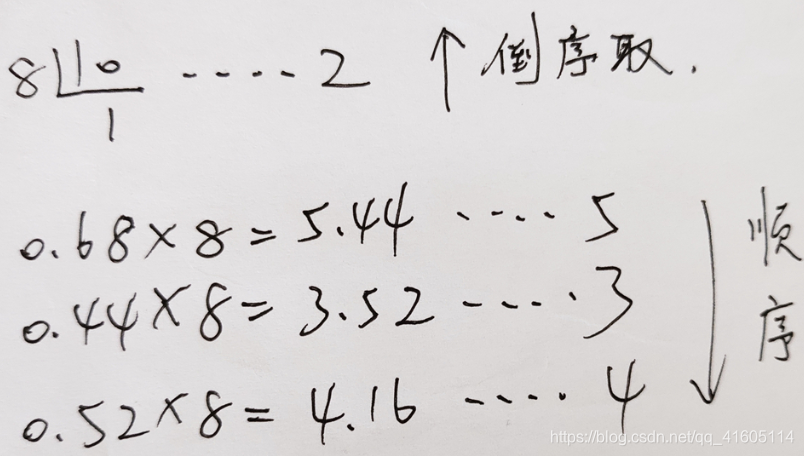 8 10 ····· 2 ↑ 倒序取.
1
0.68×8=5.44 ····· 5
0.44×8=3.52 ····· 3
0.52×8=4.16 ····· 4
↓ 顺序
https://blog.csdn.net/qq_41605114